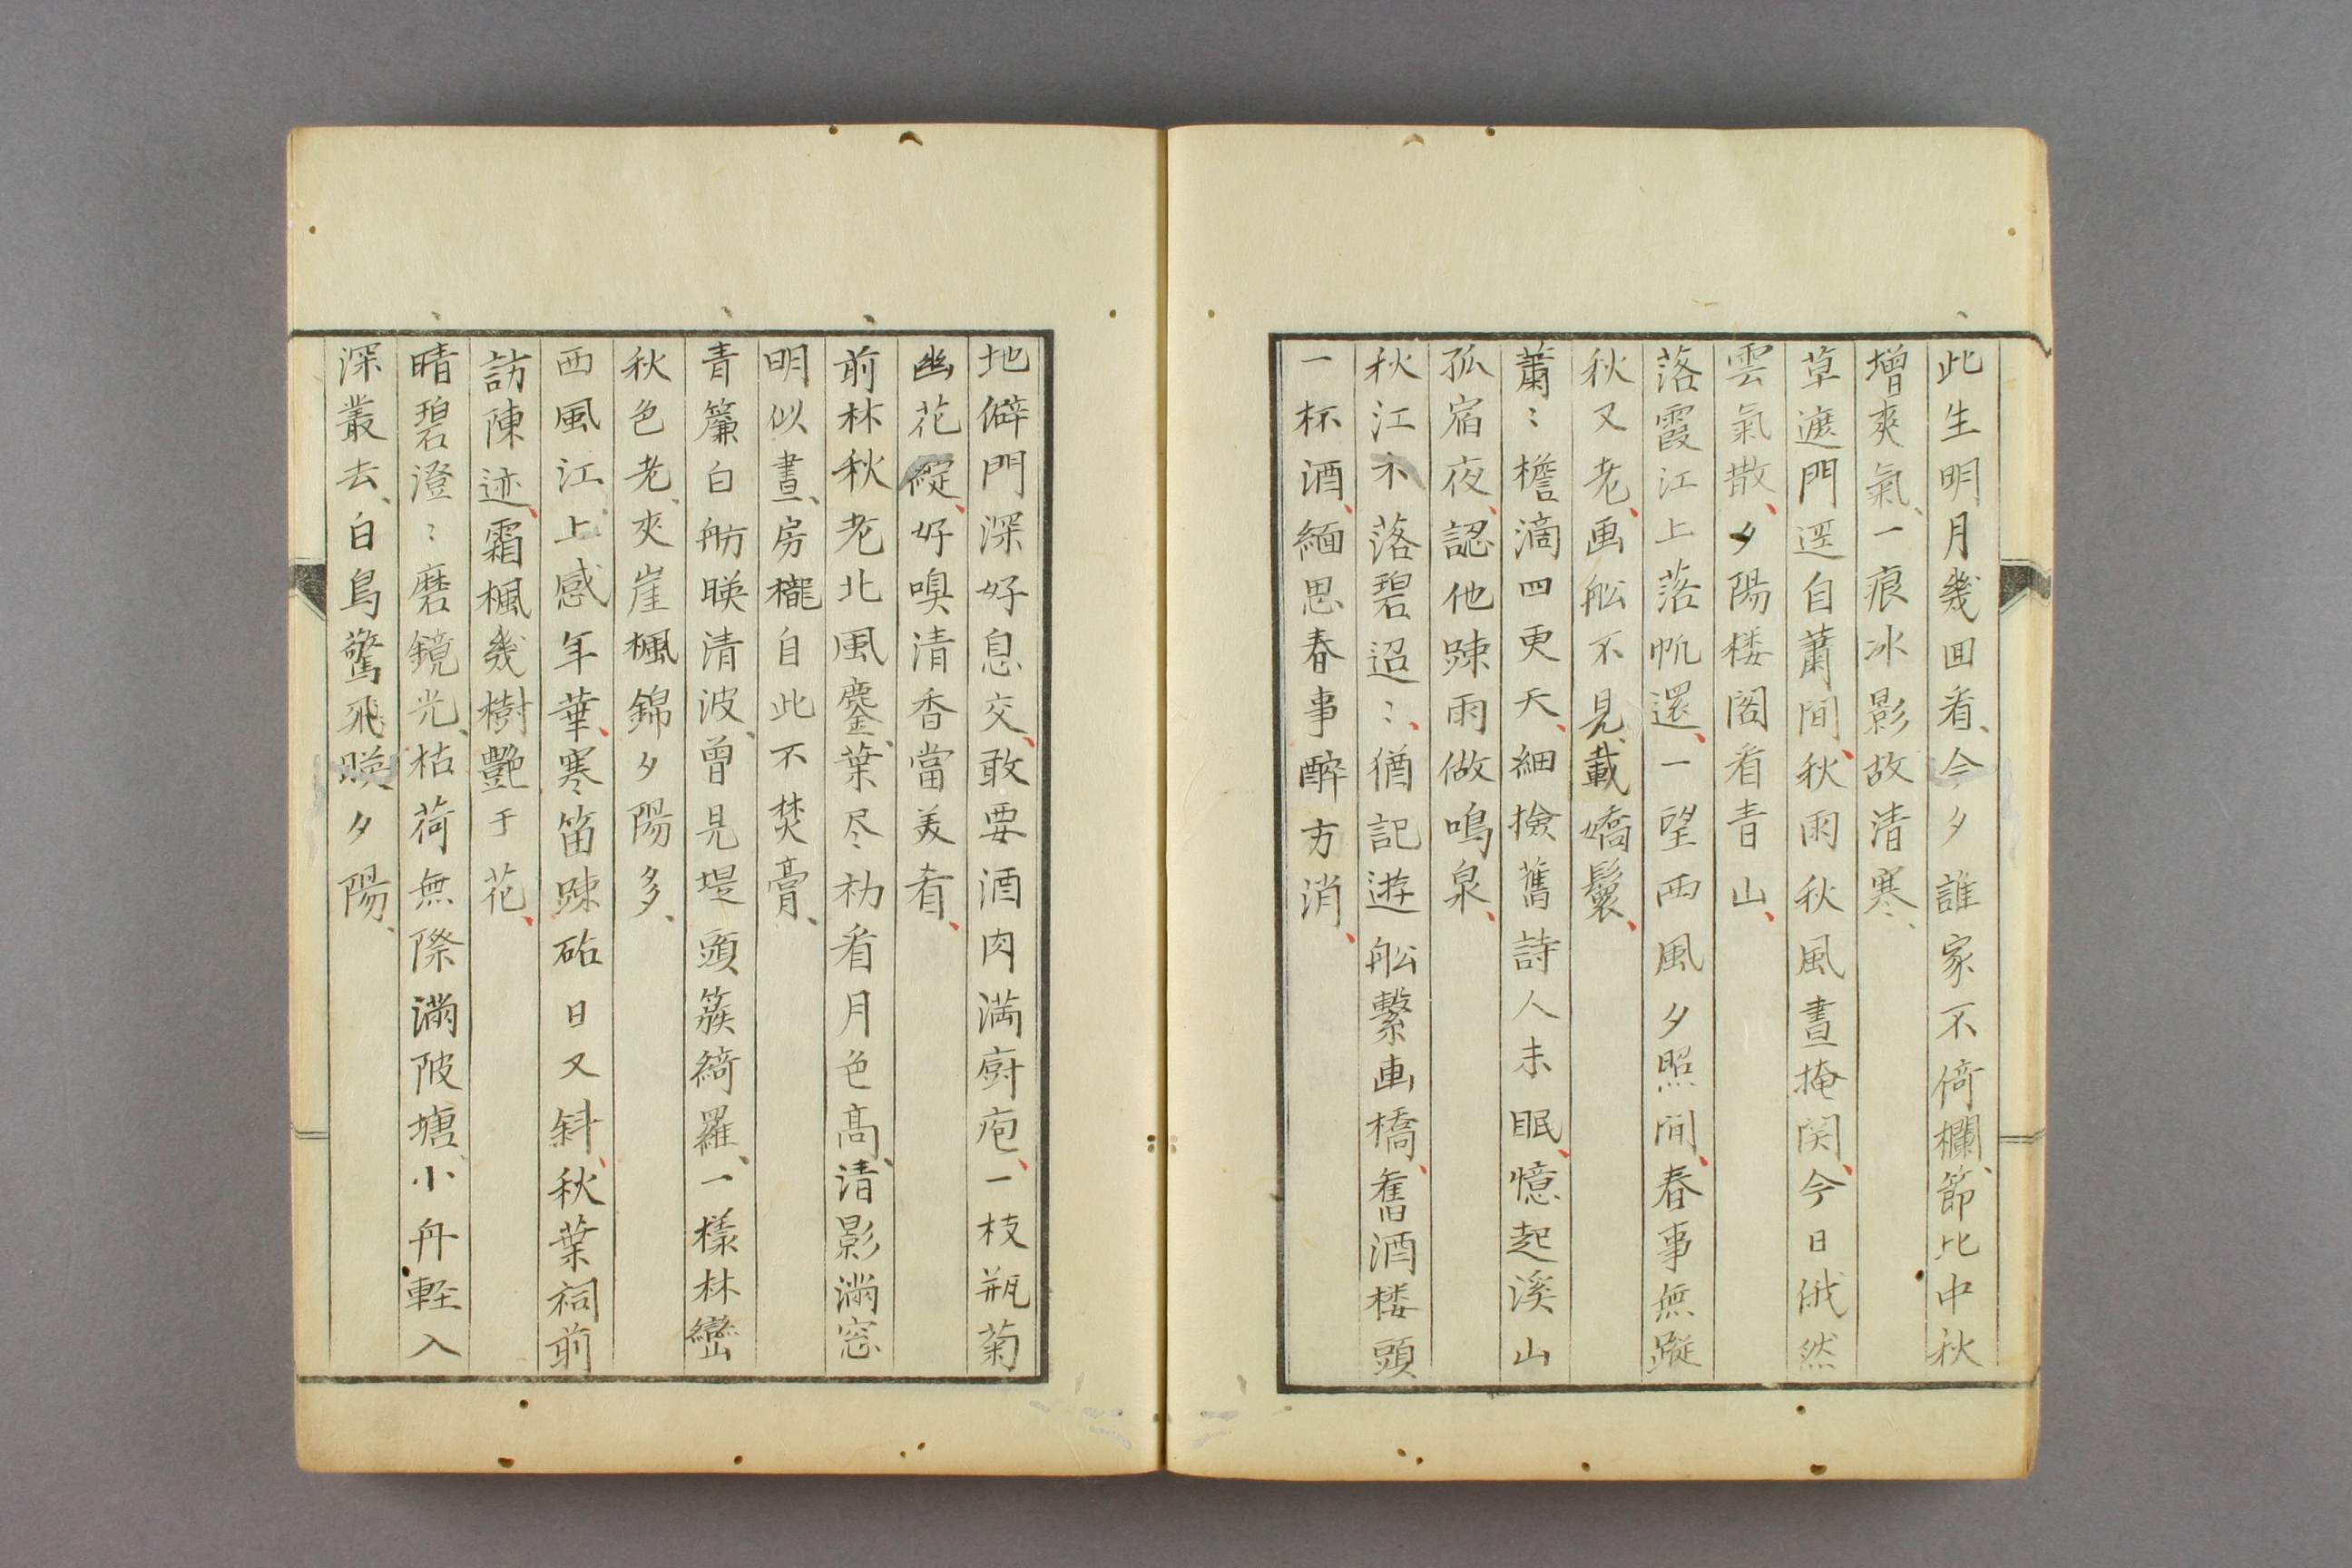 此生明月幾回看、今夕誰家不倚欄、節比中秋
増爽氣、一痕冰影故清寒、
草遮門逕自蕭間、秋雨秋風晝掩関、今日俄然
雲氣散、夕陽楼閣看青山、
落霞江上落帆還、一望西風夕照間、春事無蹤
秋又老、画舩不見載嬌鬟、
蕭〻檐滴四更天、細撿舊詩人未眠、憶起溪山
孤宿夜、認他踈雨做鳴泉、
秋江木落碧迢〻、猶記遊舩繫画橋、舊酒楼頭
一杯酒、緬思春事酔方消、
地僻門深好息交、敢要酒肉満厨庖、一枝瓶菊
幽花綻、好嗅清香當美肴、
前林秋老北風鏖、葉尽初看月色高、清影満窓
明似晝、房櫳自此不焚膏、
青簾白舫暎清波、曾見堤頭簇綺羅、一樣林巒
秋色老、夾崖楓錦夕陽多、
西風江上感年華、寒笛踈砧日又斜、秋葉祠前
訪陳迹、霜楓幾樹艶于花、
晴碧澄〻磨鏡光、枯荷無際満陂塘、小舟軽入
深叢去、白鳥驚飛暎夕陽、